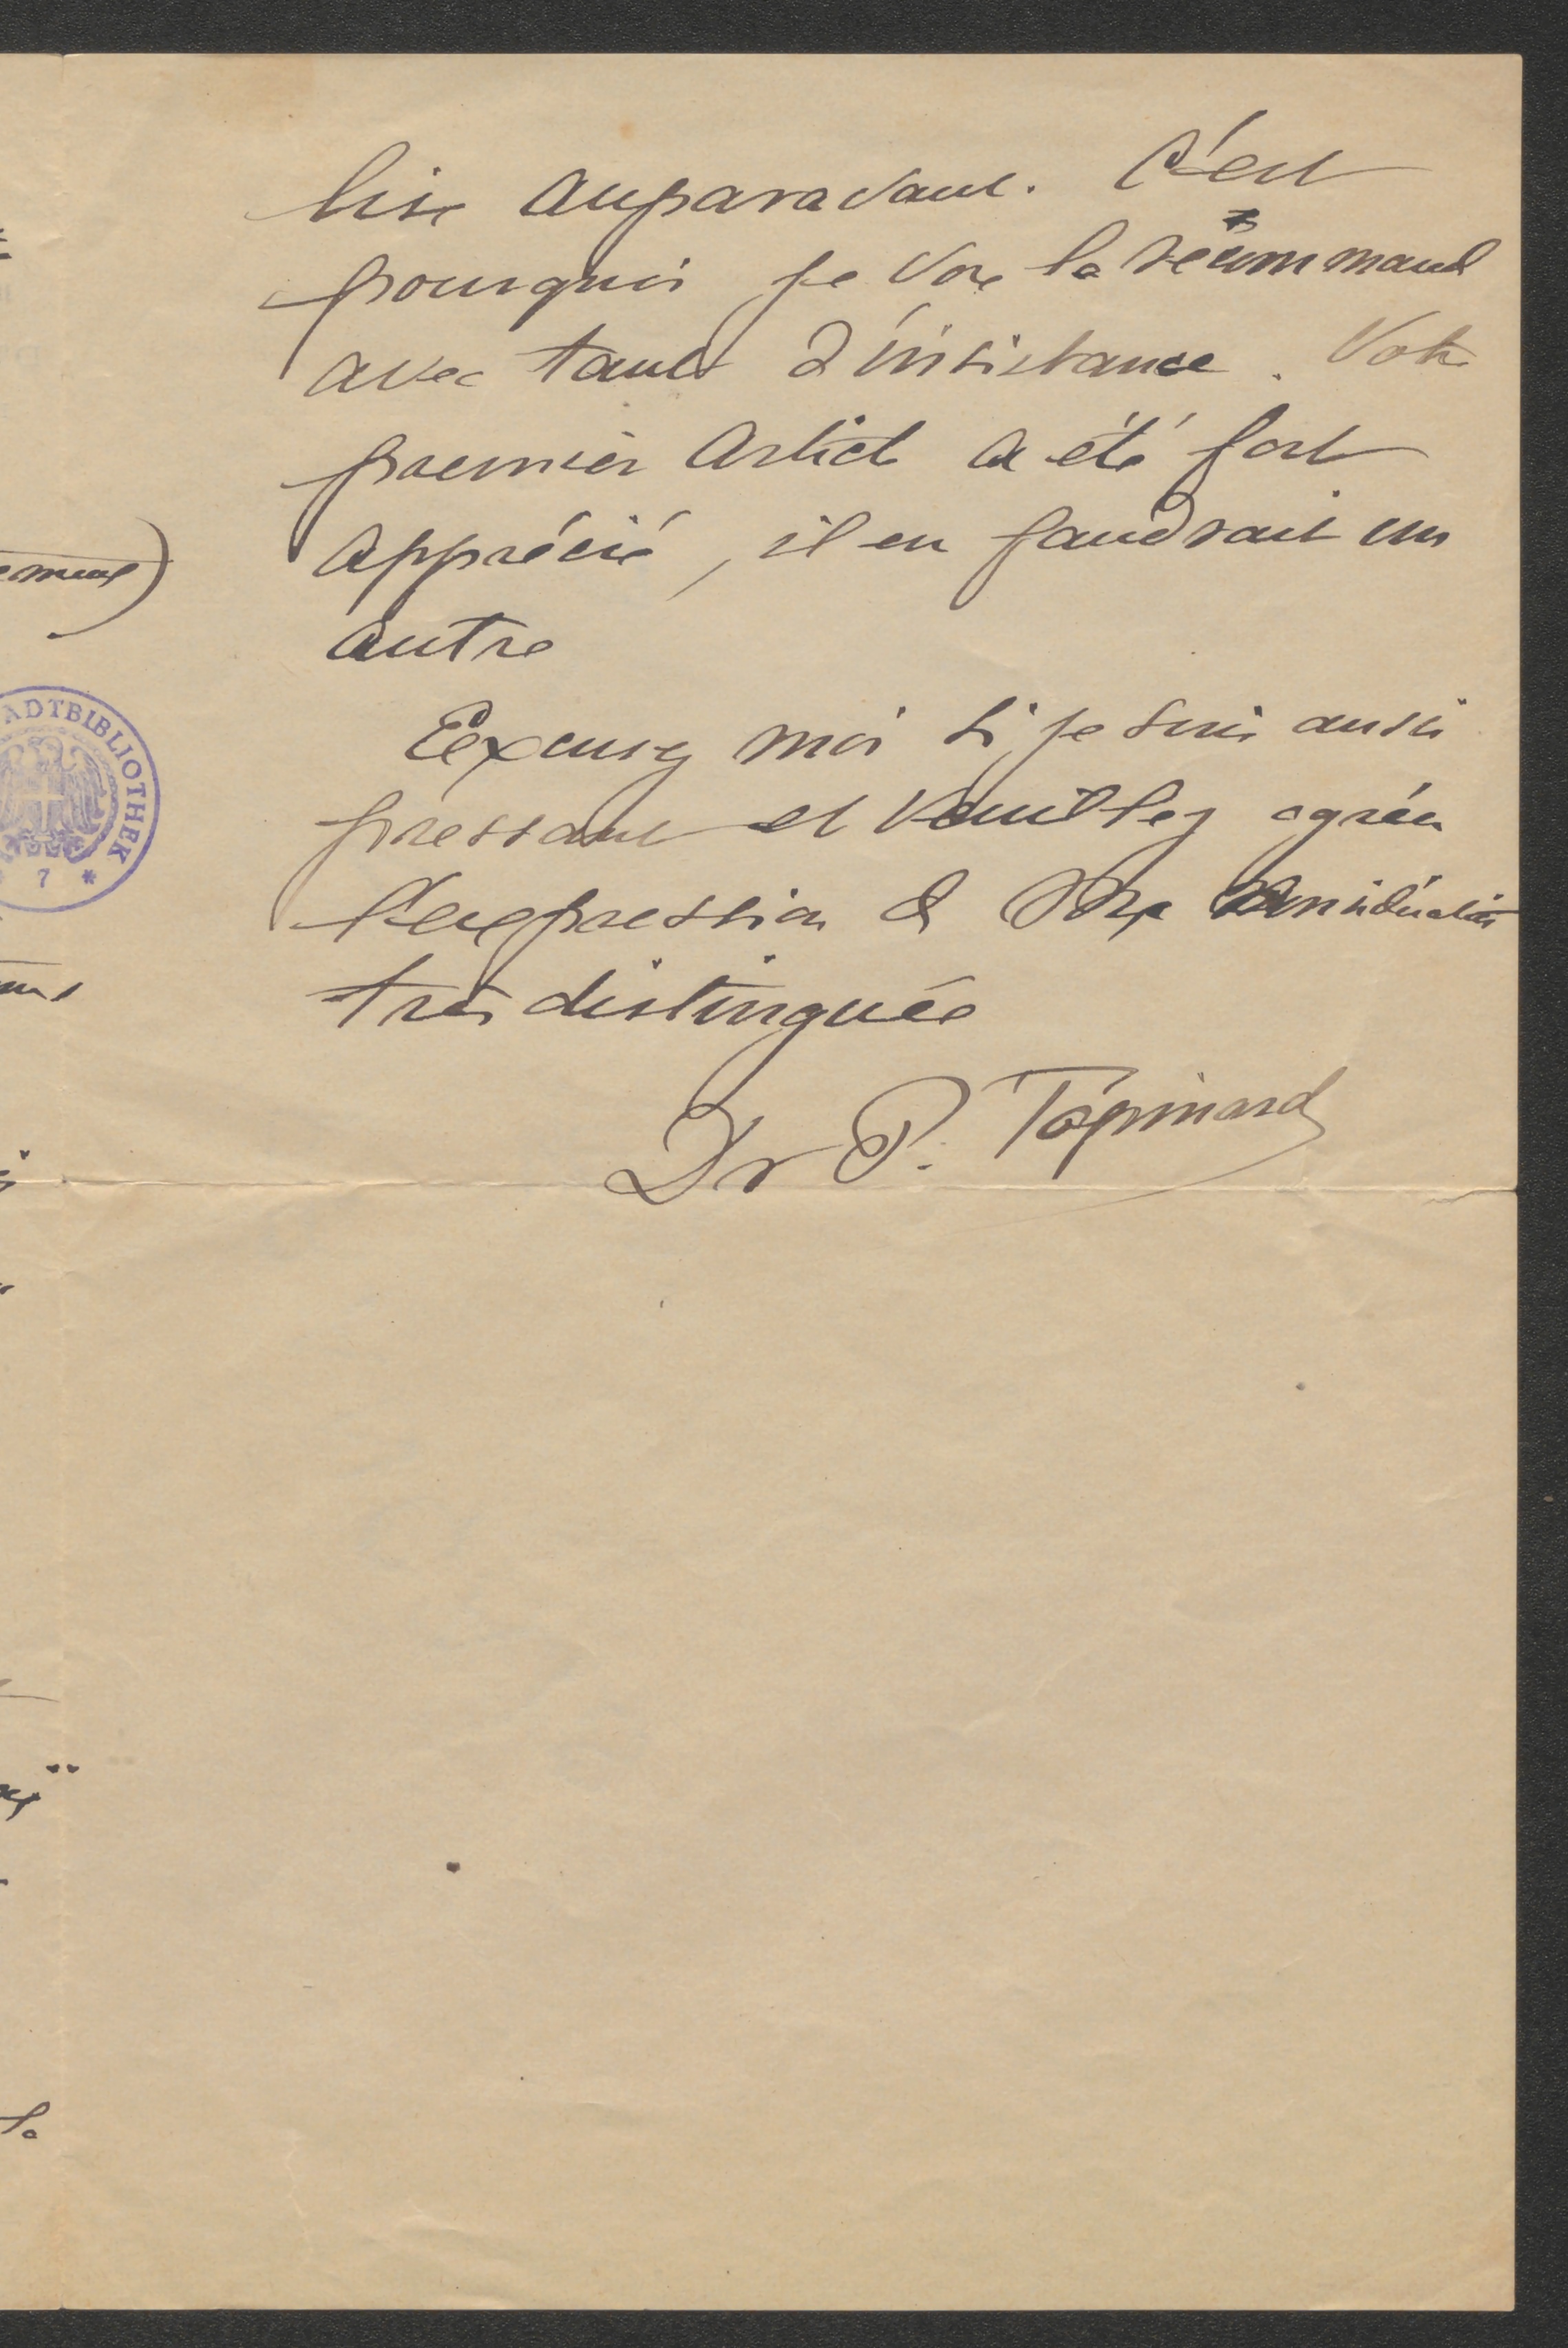 lise auparavant. C'est
pourquoi je vous la recommande
avec tant d'insistance. Votre
premier article a été fort
apprécié, il en faudrait un
autre
Excusez moi si je suis aussi
pressant et veuillez agréer
l'expression de ma considération
très distinguée
Dr P. Topinard
ADTBIBLIOTHEK
* 7 *